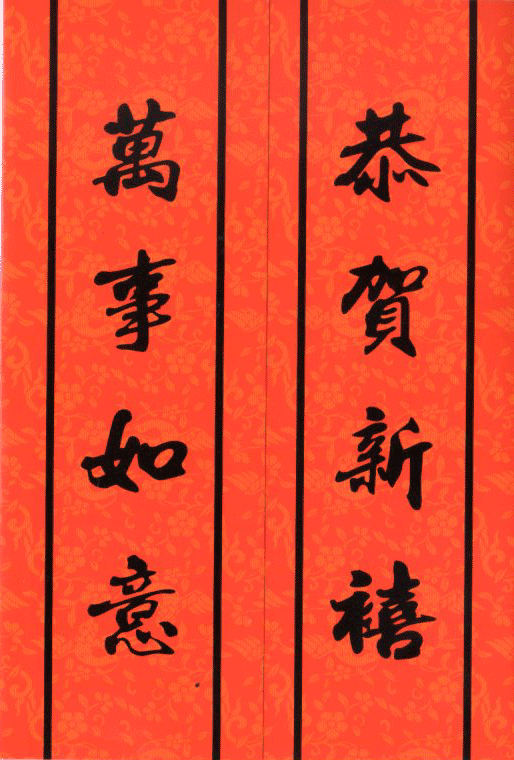 恭賀新禧
萬事如意